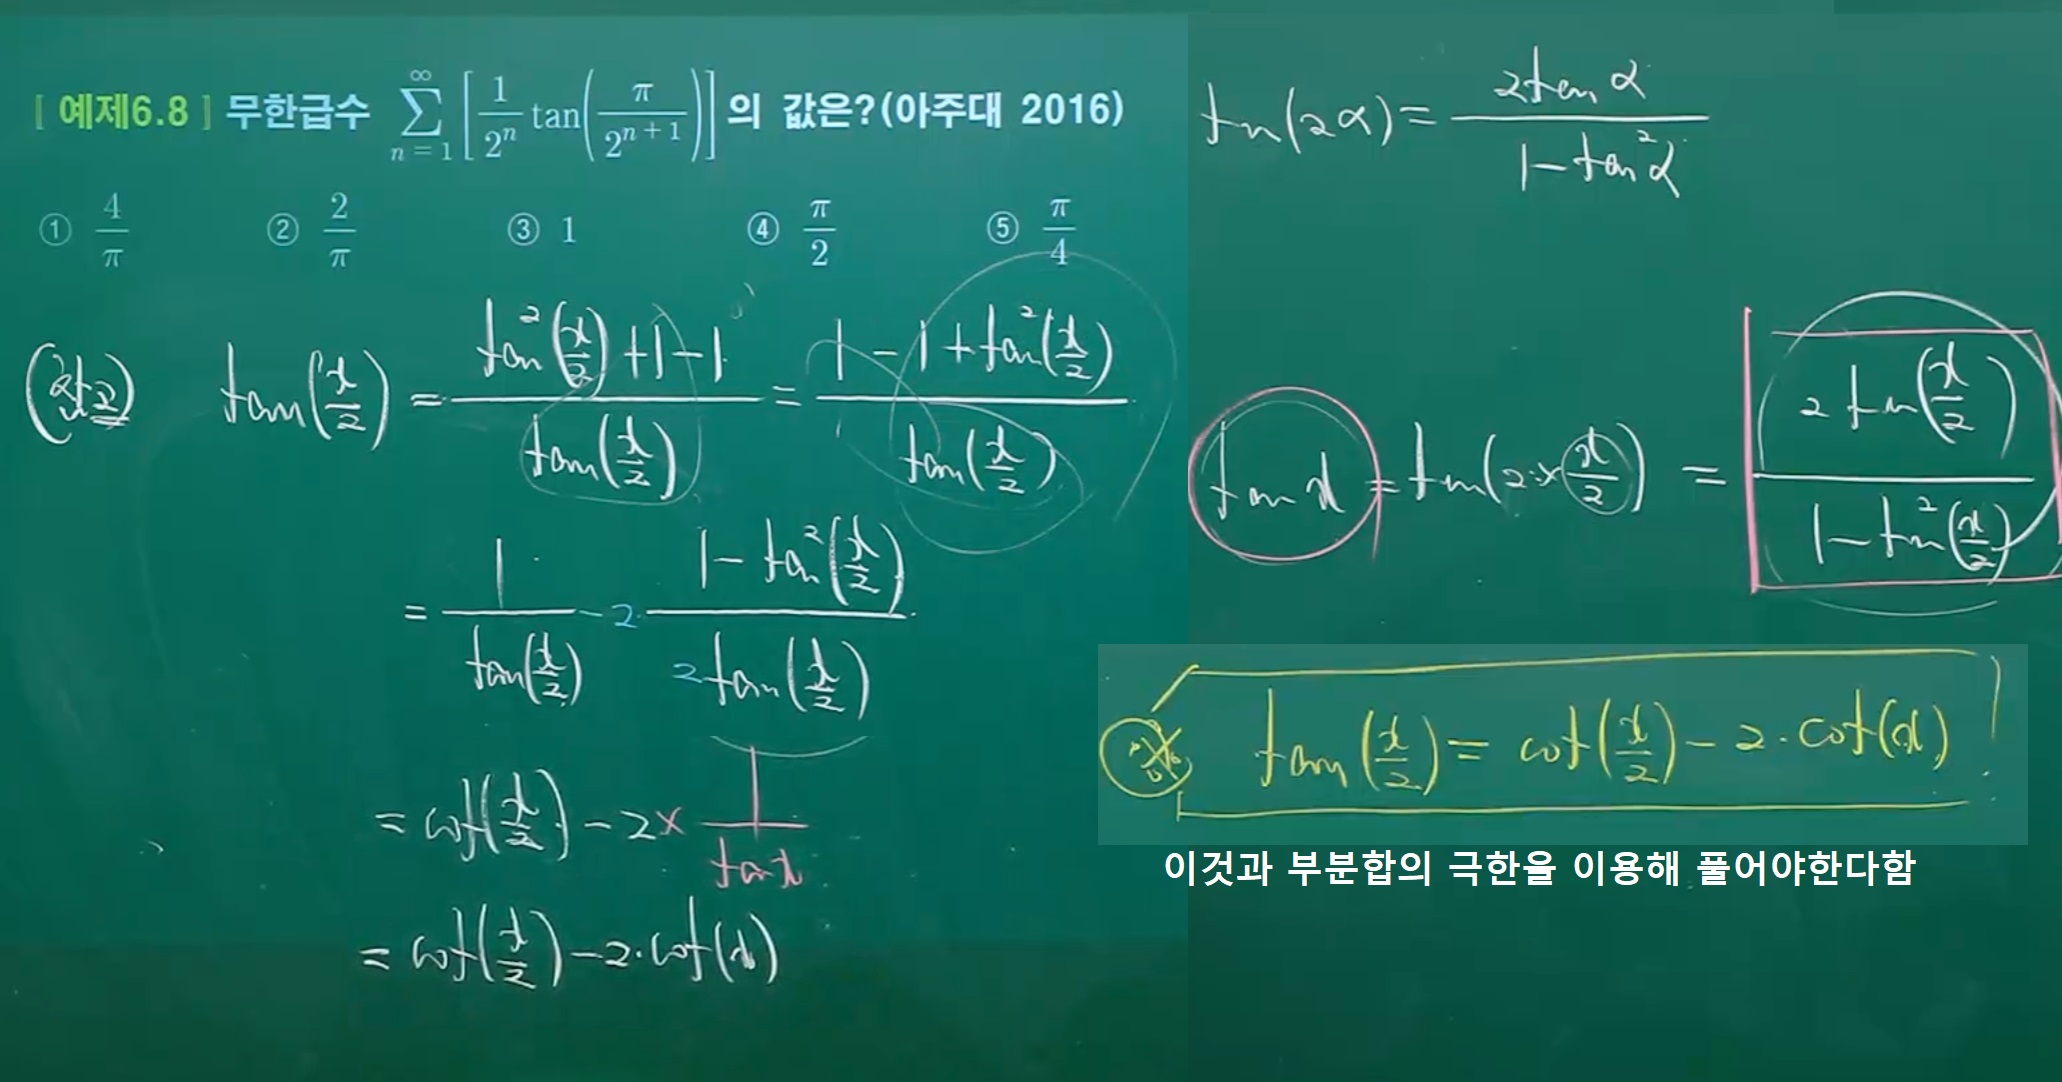 [ 예제6.8 ] 무한급수 \sum_{n=1}^{\infty} \left[ \frac{1}{2^n} \tan\left( \frac{\pi}{2^{n+1}} \right) \right] 의 값은?(아주대 2016)
① \frac{4}{\pi} ② \frac{2}{\pi} ③ 1 ④ \frac{\pi}{2} ⑤ \frac{\pi}{4}
\tan\left(\frac{x}{2}\right) = \frac{\tan^2\left(\frac{x}{2}\right)+1-1}{\tan\left(\frac{x}{2}\right)} = \frac{1-1+\tan^2\left(\frac{x}{2}\right)}{\tan\left(\frac{x}{2}\right)}
= \frac{1}{\tan\left(\frac{x}{2}\right)} - 2 \cdot \frac{1-\tan^2\left(\frac{x}{2}\right)}{2\tan\left(\frac{x}{2}\right)}
= \cot\left(\frac{x}{2}\right) - 2 × \frac{1}{\tan x}
= \cot\left(\frac{x}{2}\right) - 2 \cdot \cot(x)
\tan(2α) = \frac{2\tan α}{1-\tan^2 α}
\tan x = \tan\left(2 × \frac{x}{2}\right) = \frac{2\tan\left(\frac{x}{2}\right)}{1-\tan^2\left(\frac{x}{2}\right)}
※ \tan\left(\frac{x}{2}\right) = \cot\left(\frac{x}{2}\right) - 2 \cdot \cot(x)
이것과 부분합의 극한을 이용해 풀어야한다함